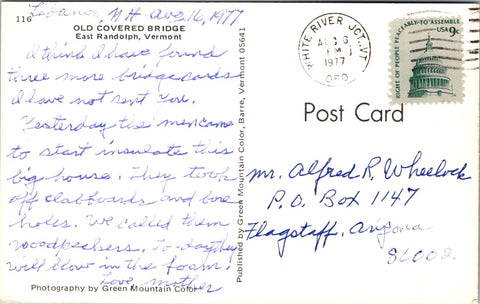 Lebanon, NH Aug. 16, 1977
116
OLD COVERED BRIDGE
East Randolph, Vermont
I think I have found
three more bridge cards
I have not sent You.
Yesterday the men came
to start insulate this
big house. They took
off clabboards and bore
holes. We called them
woodpeckers. To-day they
will blow in the foam.
Love, Mother
Photography by Green Mountain Color
Published by Green Mountain Color, Barre, Vermont 05641
WHITE RIVER JCT., VT
AUG 16
PM
1977
RIGHT OF PEOPLE PEACEABLY TO ASSEMBLE
USA 9c
Post Card
Mr. Alfred R. Wheelock
P.O. Box 1147
Flagstaff, Arizona
86002